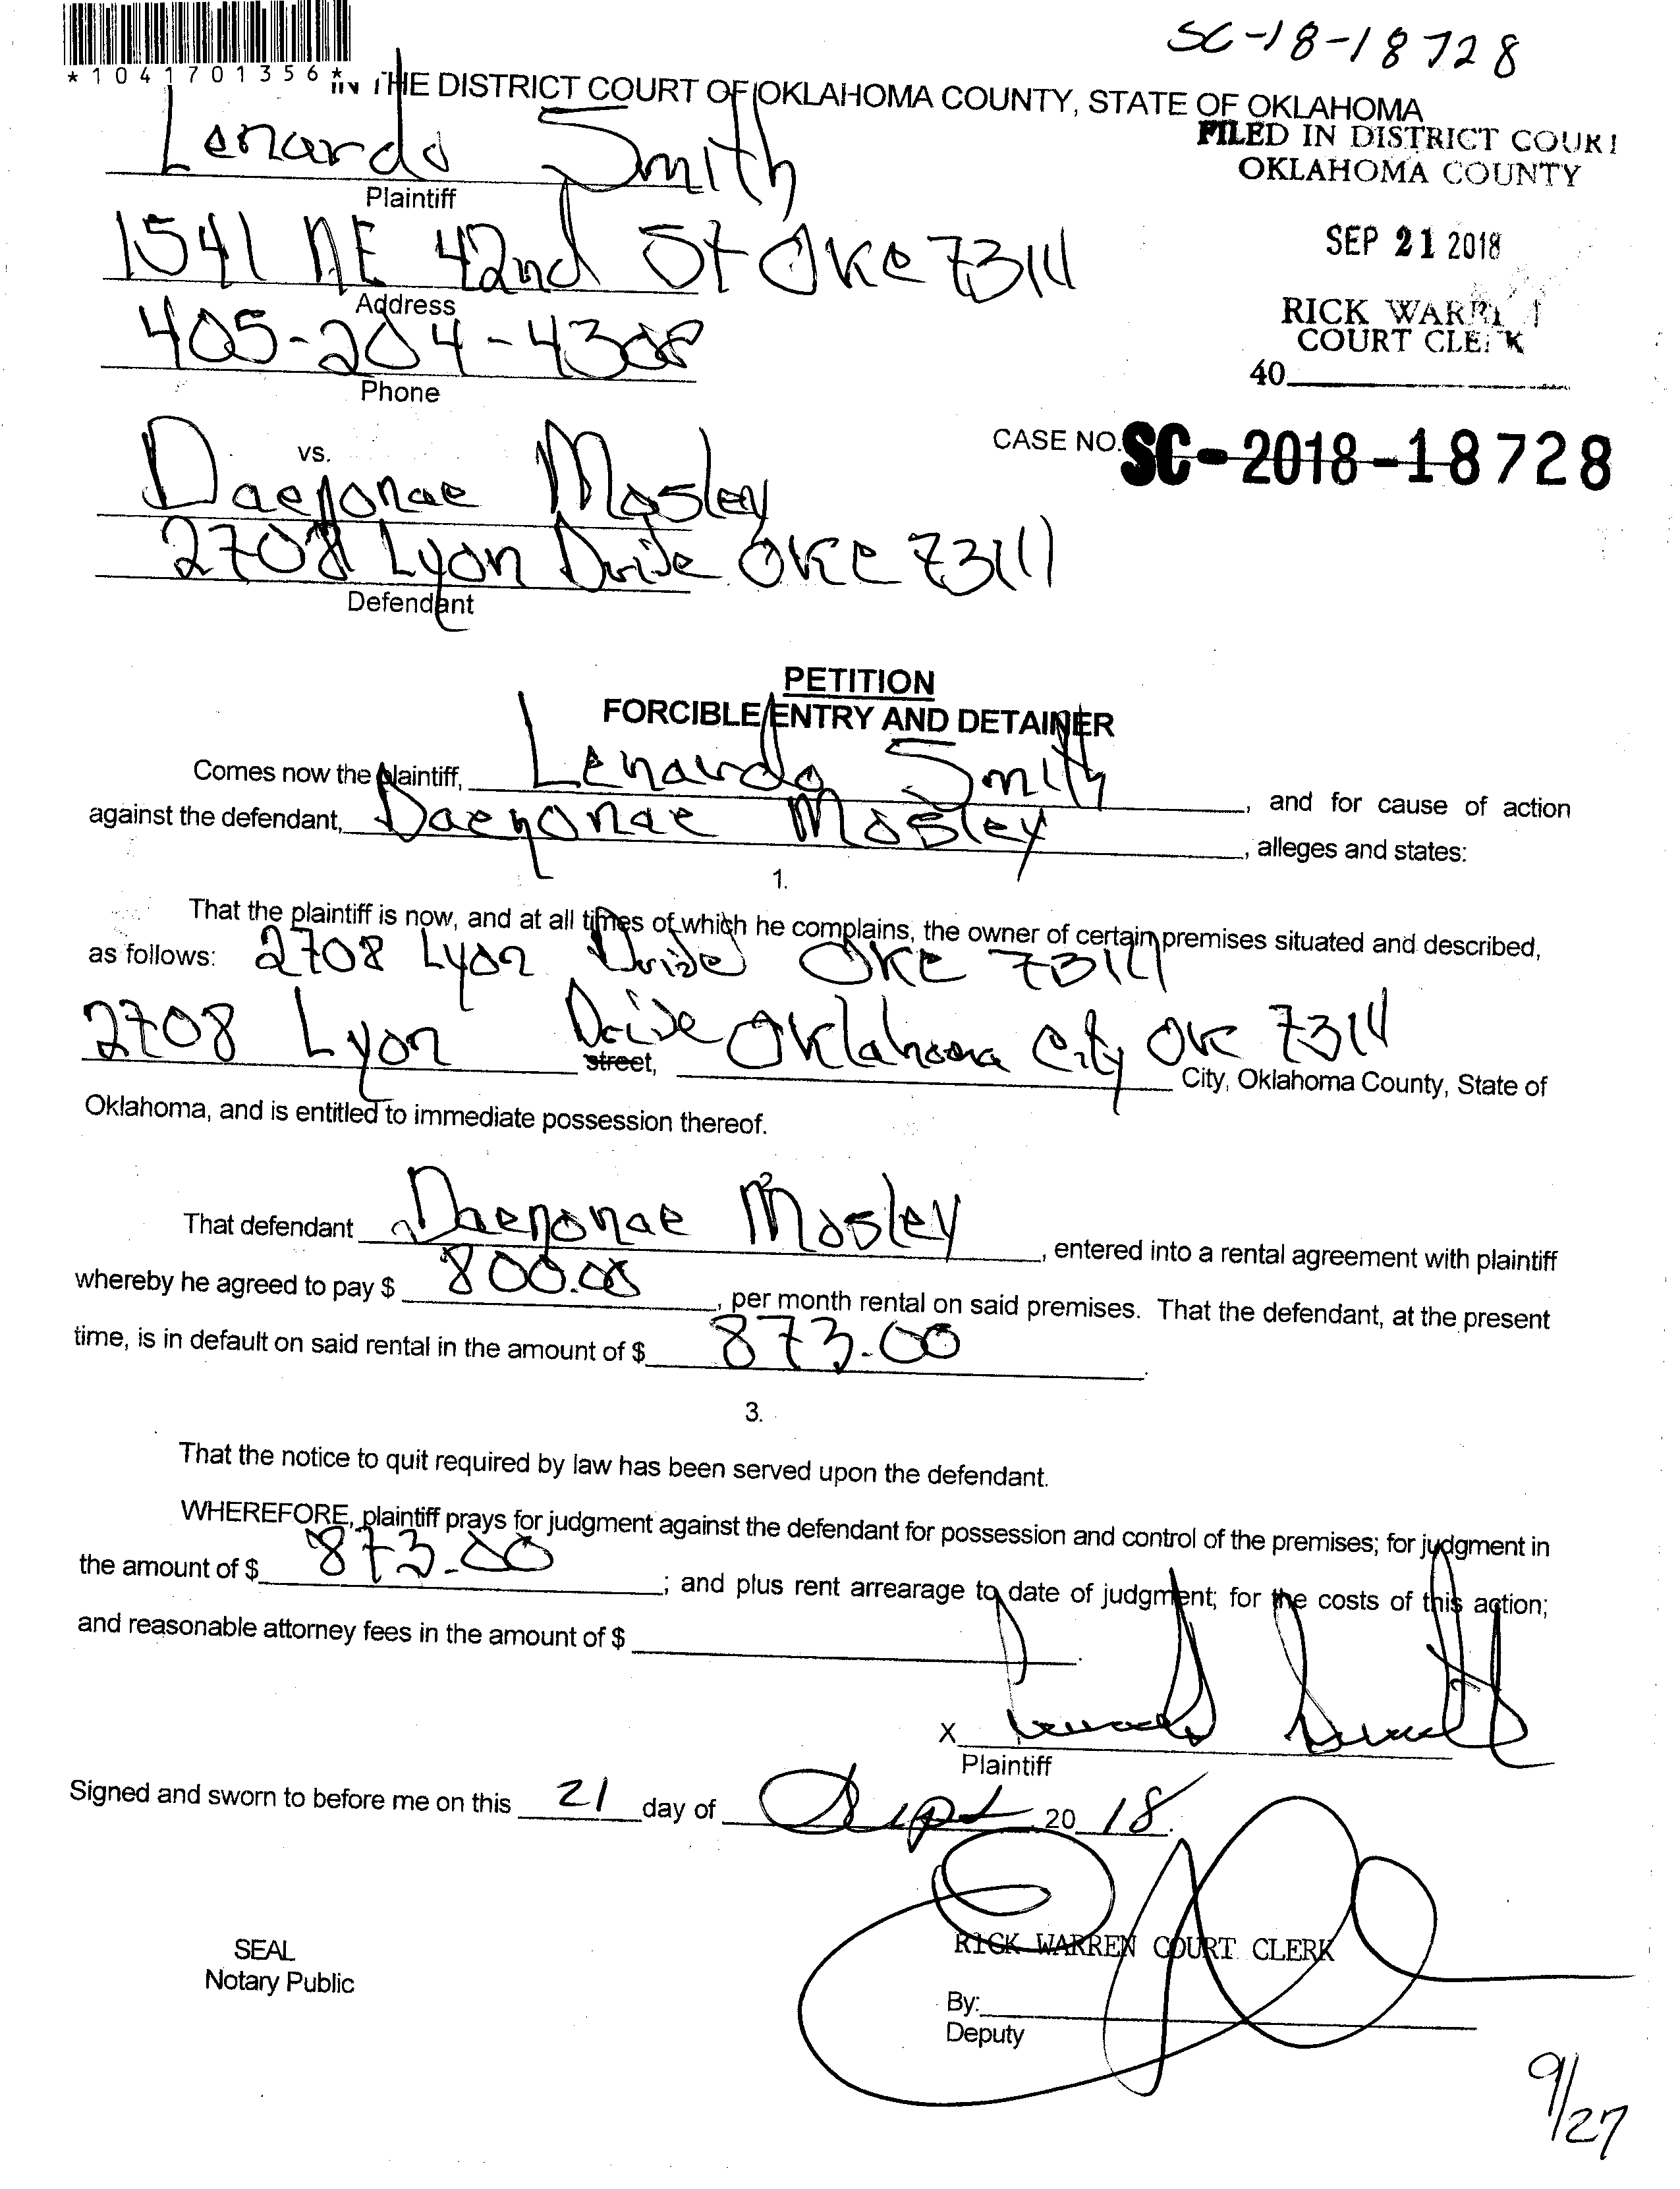 SC-18-18728
*1041701356*
IN THE DISTRICT COURT OF OKLAHOMA COUNTY, STATE OF OKLAHOMA
FILED IN DISTRICT COURT
OKLAHOMA COUNTY
Lenardo Smith
Plaintiff
SEP 21 2018
1541 NE 42nd St OKC 73111
Address
RICK WARREN
COURT CLERK
405-204-4308
40
Phone
CASE NO. SC-2018-18728
vs.
Daejonae Mosley
2708 Lyon Drive OKC 73111
Defendant
PETITION
FORCIBLE ENTRY AND DETAINER
Comes now the plaintiff, Lenardo Smith, and for cause of action
against the defendant, Daejonae Mosley, alleges and states:
1.
That the plaintiff is now, and at all times of which he complains, the owner of certain premises situated and described,
as follows: 2708 Lyon Drive OKC 73111
2708 Lyon Drive Oklahoma City OK 73111
street, City, Oklahoma County, State of
Oklahoma, and is entitled to immediate possession thereof.
That defendant Daejonae Mosley, entered into a rental agreement with plaintiff
whereby he agreed to pay $ 800.00, per month rental on said premises. That the defendant, at the present
time, is in default on said rental in the amount of $ 873.00.
3.
That the notice to quit required by law has been served upon the defendant.
WHEREFORE, plaintiff prays for judgment against the defendant for possession and control of the premises; for judgment in
the amount of $ 873.00; and plus rent arrearage to date of judgment; for the costs of this action;
and reasonable attorney fees in the amount of $ .
X Lenardo Smith
Plaintiff
Signed and sworn to before me on this 21 day of Sept 20 18.
RICK WARREN COURT CLERK
SEAL
Notary Public
By:
Deputy
9/27